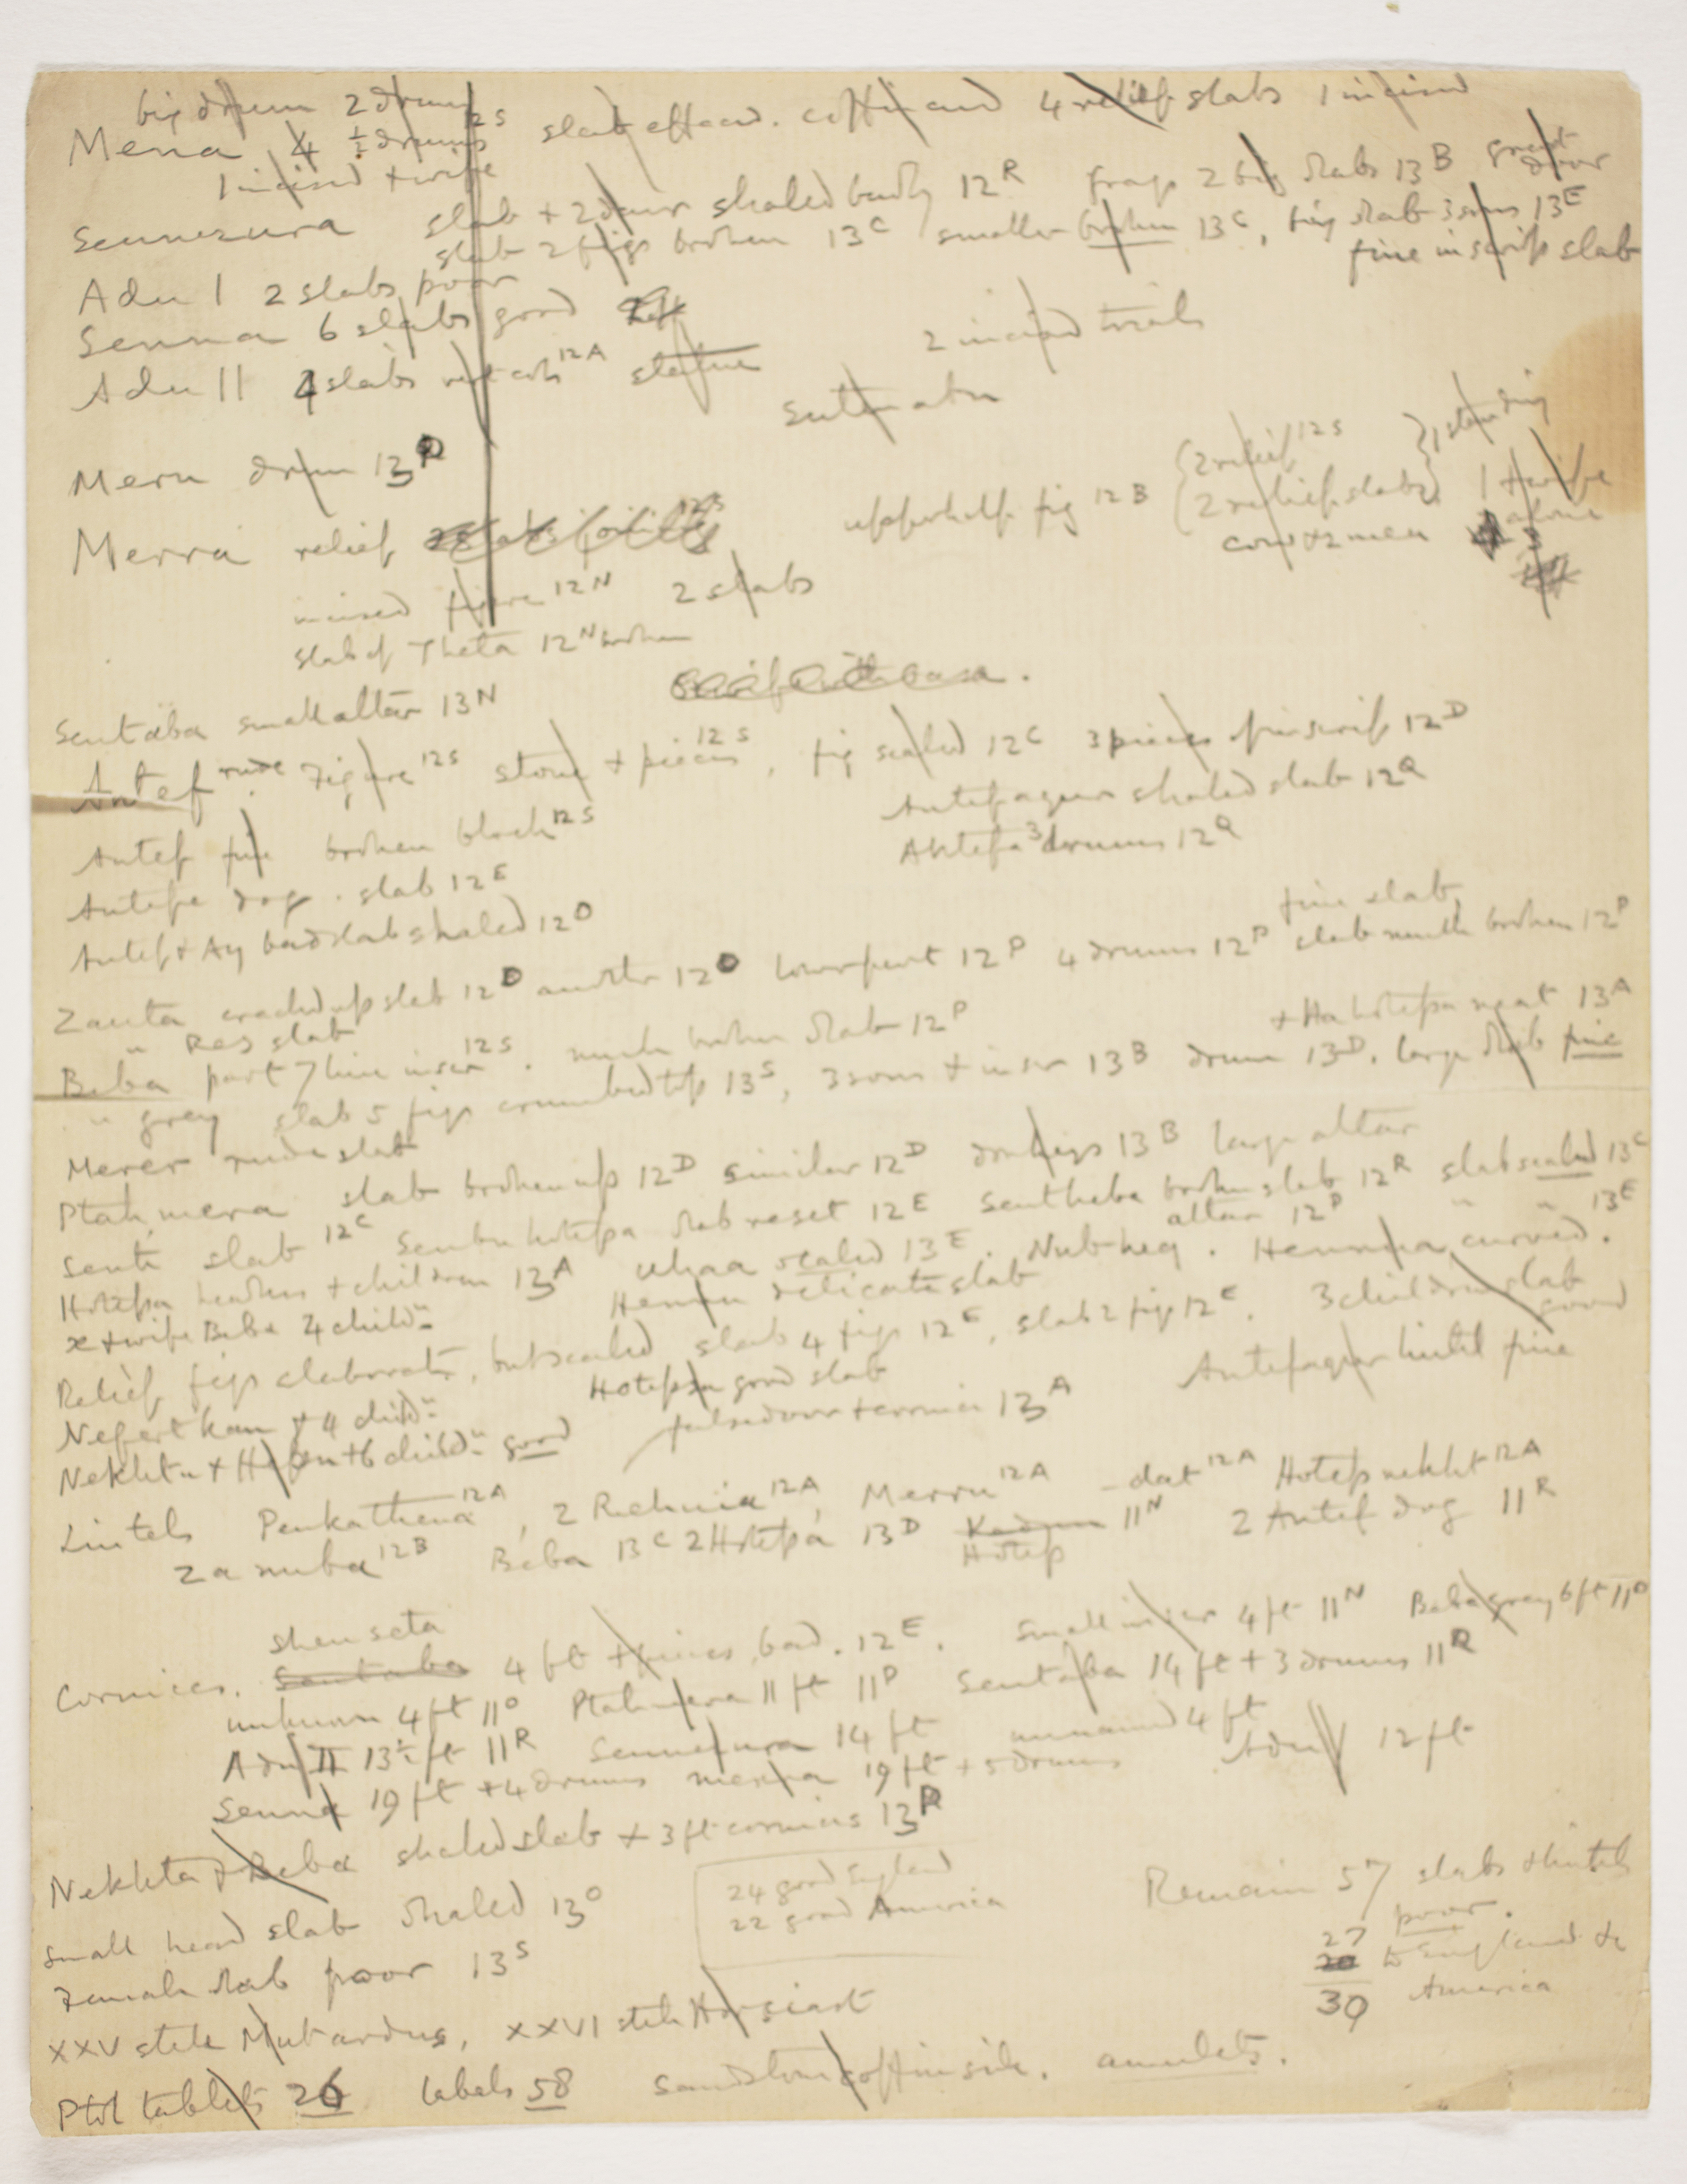 big drum 2 drums
Mena 4 ½ drums 12S slab effaced. coffin and 4 relief slabs 1 incised
1 incised + wife
Sennezura slab + 2 door shaled badly 12R frags 2 big slabs 13B great door
slab 2 figs broken 13C smaller broken 13C, fig slab 3 sons 13E
Adu I 2 slabs poor fine inscrip slab
Senna 6 slabs good
Adu II 4 slabs 12A statue 2 incised
Meru drum 13R
Merra relief upper half fig 12B {2 relief 12S } 1 standing
{2 relief slabs} 1 + wife
cow + 2 men alone
incised figure 12N 2 slabs 3
slab of Theta 12N broken
Sentaba small altar 13N
Antef rude Figure 12S stone + pieces 12S, fig scaled 12C 3 pieces of inscrip 12D
Antefaqur shaled slab 12Q
Antef fine broken block 12S Antefa 3 drums 12Q
Antefe dog. slab 12E
Antef + Ay bad slab shaled 12O fine slab
Zauta cracked up slab 12O another 12O lower part 12P 4 drums 12P slab much broken 12P
" Res slab
Beba part 7 line inscr 12S. much broken slab 12P + Ha hotepa neat 13A
" grey slab 5 figs crumbled top 13S, 3 sons + inscr 13B drum 13D. large slab fine
Merer rude slab
Ptahmera slab broken up 12D similar 12D 13B large altar
Senti slab 12C Senbu hotepa slab reset 12E Sentheba broken slab 12R slab scaled 13C
altar 12P " " 13E
Hotepa headless + children 13A Uhaa scaled 13E. Nubheq. Hennna curved.
x + wife Beba 4 child" Hennu delicate slab
Relief figs elaborate, but scaled slab 4 figs 12E, slab 2 figs 12E. 3 children slab good
Nefertkau + 4 child" Hotepsa good slab Antefaqur lintel fine
Nekhtu + + 6 child" good false door + cornice 13A
Lintels Penkathena 12A, 2 Rehuia 12A, Merru 12A -dat 12A Hotepnekht 12A
Zanuba 12B Beba 13C 2 Hotepa 13D 11N 2 Antef dog 11R
Hotep
shenseta
Cornices. Sentaba 4 ft + pieces, bad. 12E. small inscr 4 ft 11N Beba grey 6 ft 11O
unknown 4 ft 11O Ptahmera 11 ft 11P Sentaba 14 ft + 3 drums 11R
Adu II 13½ ft 11R Sennezura 14 ft unnamed 4 ft
Senna 19 ft + 4 drums merra 19 ft + 5 drums Adu 12 ft
Nekhta + Beba shaled slab + 3 ft cornices 13R
24 good England
22 good America
Remain 57 slabs + lintels
poor.
small head slab shaled 13O
27
20 to England &
30 America
Female slab poor 13S
XXV stele Mutardus, XXVI stele Horsiast
Ptol tablets 26 labels 58 sandstone coffin side. amulets.